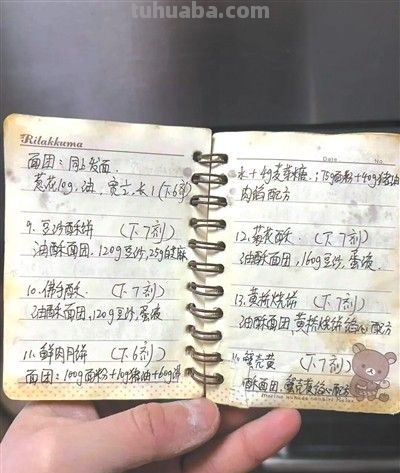 tuhuaba.com
Rilakkuma
面团:同上发面
葱花10g,油,
(下6剂)
9. 豆沙酥饼 (下7剂)
油酥面团,120g豆沙,25g
10. 佛手酥 (下7剂)
油酥面团,120g豆沙,蛋液
11. 鲜肉月饼 (下6剂)
面团:100g面粉+10g猪油+60g
Date No.
水+4g麦芽糖;75g面粉+40g猪油
肉馅配方
12. 菊花酥 (下7剂)
油酥面团,160g豆沙,蛋液
13. 黄桥烧饼 (下7剂)
油酥面团,黄桥烧饼馅心配方
14. 蟹壳黄 (下7剂)
酥面团,蟹壳黄馅心配方